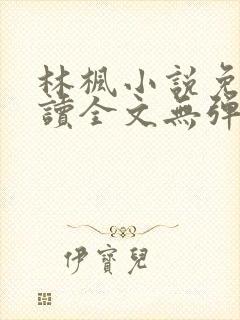 林楓小說免
讀全文無彈
伊寶兒